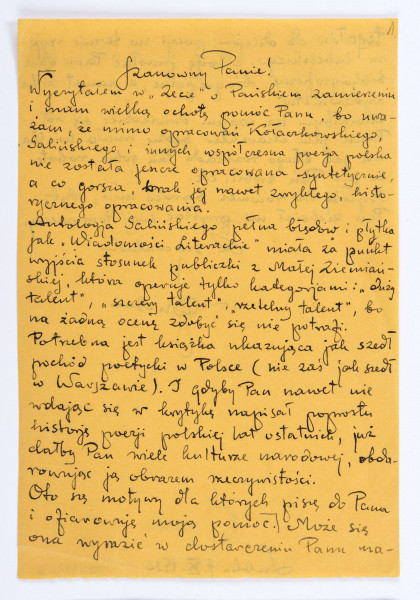 1.
Szanowny Panie!
Wyczytałem w „Zecie" o Pańskiem zamierzeniu
i mam wielką ochotę pomóc Panu, bo uwa-
żam, że mimo opracowań Kołaczkowskiego,
Galińskiego i innych współczesna poezja polska
nie została jeszcze opracowana syntetycznie,
a co gorsza, brak jej nawet zwykłego, histo-
rycznego opracowania.
Antologja Galińskiego pełna błędów i płytka
jak „Wiadomości Literackie" miała za punkt
wyjścia stosunek publiczki z Małej Ziemiań-
skiej, która operuje tylko kategorjami: „duży
talent", „szczery talent", „rzetelny talent", bo
na żadną ocenę zdobyć się nie potrafi.
Potrzebna jest książka ukazująca jak szedł
pochód poetycki w Polsce (nie zaś jak szedł
w Warszawie). I gdyby Pan nawet nie
wdając się w krytykę napisał poprostu
historję poezji polskiej lat ostatnich, już
dałby Pan wiele kulturze narodowej, obda-
rowując ją obrazem rzeczywistości.
Oto są motywy dla których piszę do Pana
i ofiarowuję moją pomoc. Może się
ona wyrazić w dostarczeniu Panu na-